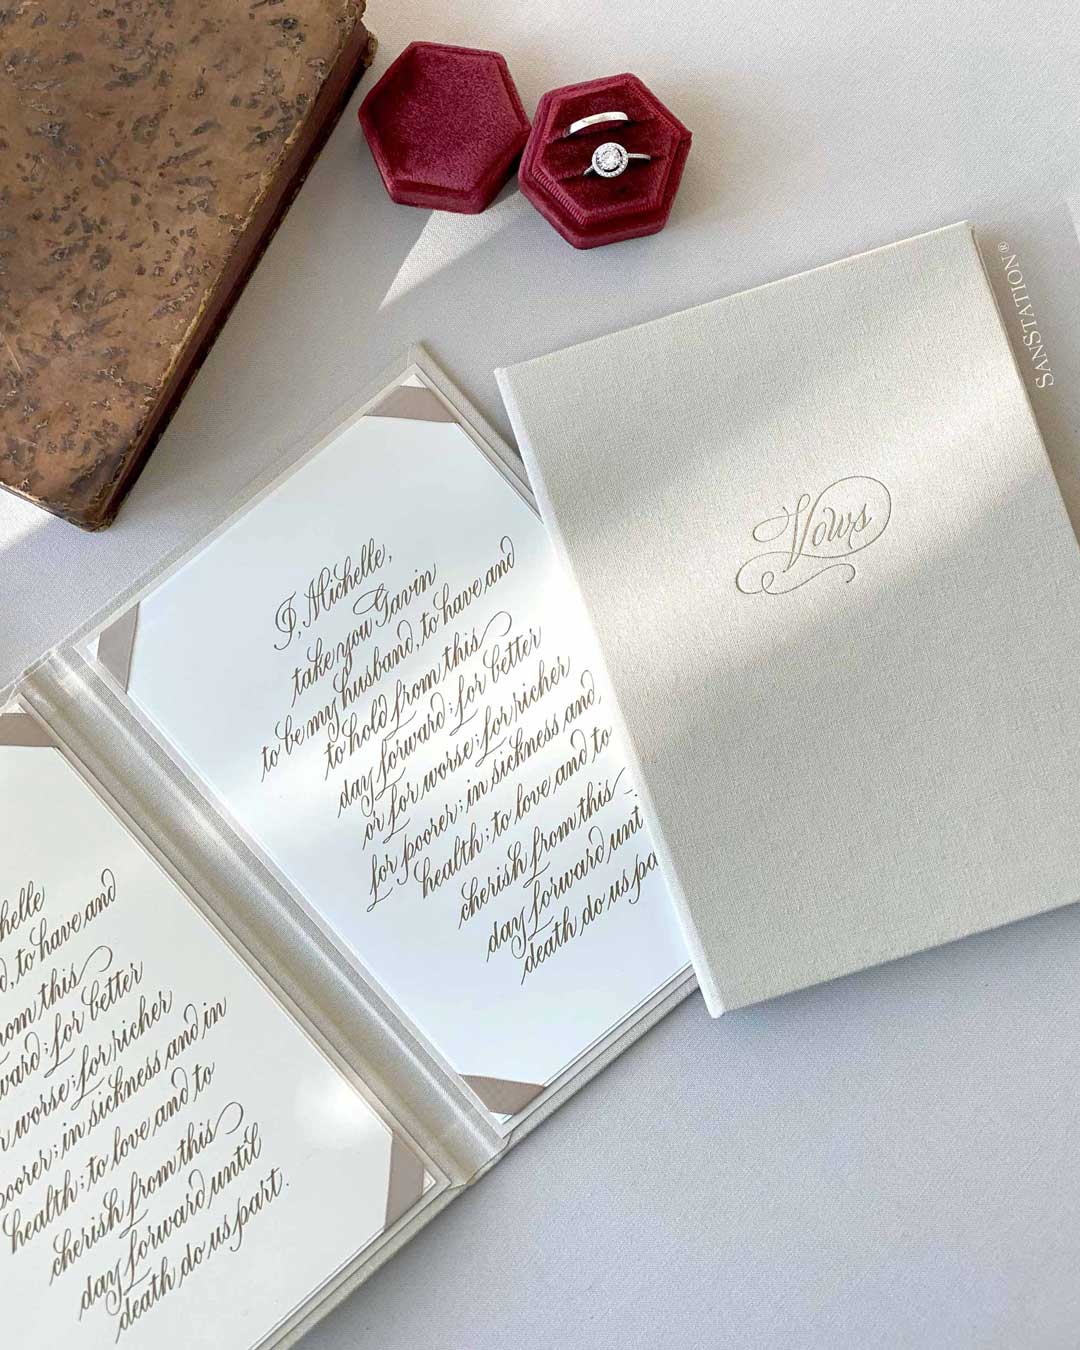 SANSTATION®
Vows
I, Michelle,
take you Gavin
to be my husband, to have and
to hold from this
day forward; for better
or for worse; for richer
for poorer; in sickness and
health; to love and to
cherish from this
day forward unt
death do us pa
helle
d, to have and
rom this
ward; for better
r worse; for richer
poorer; in sickness and in
health; to love and to
cherish from this
day forward until
death do us part.